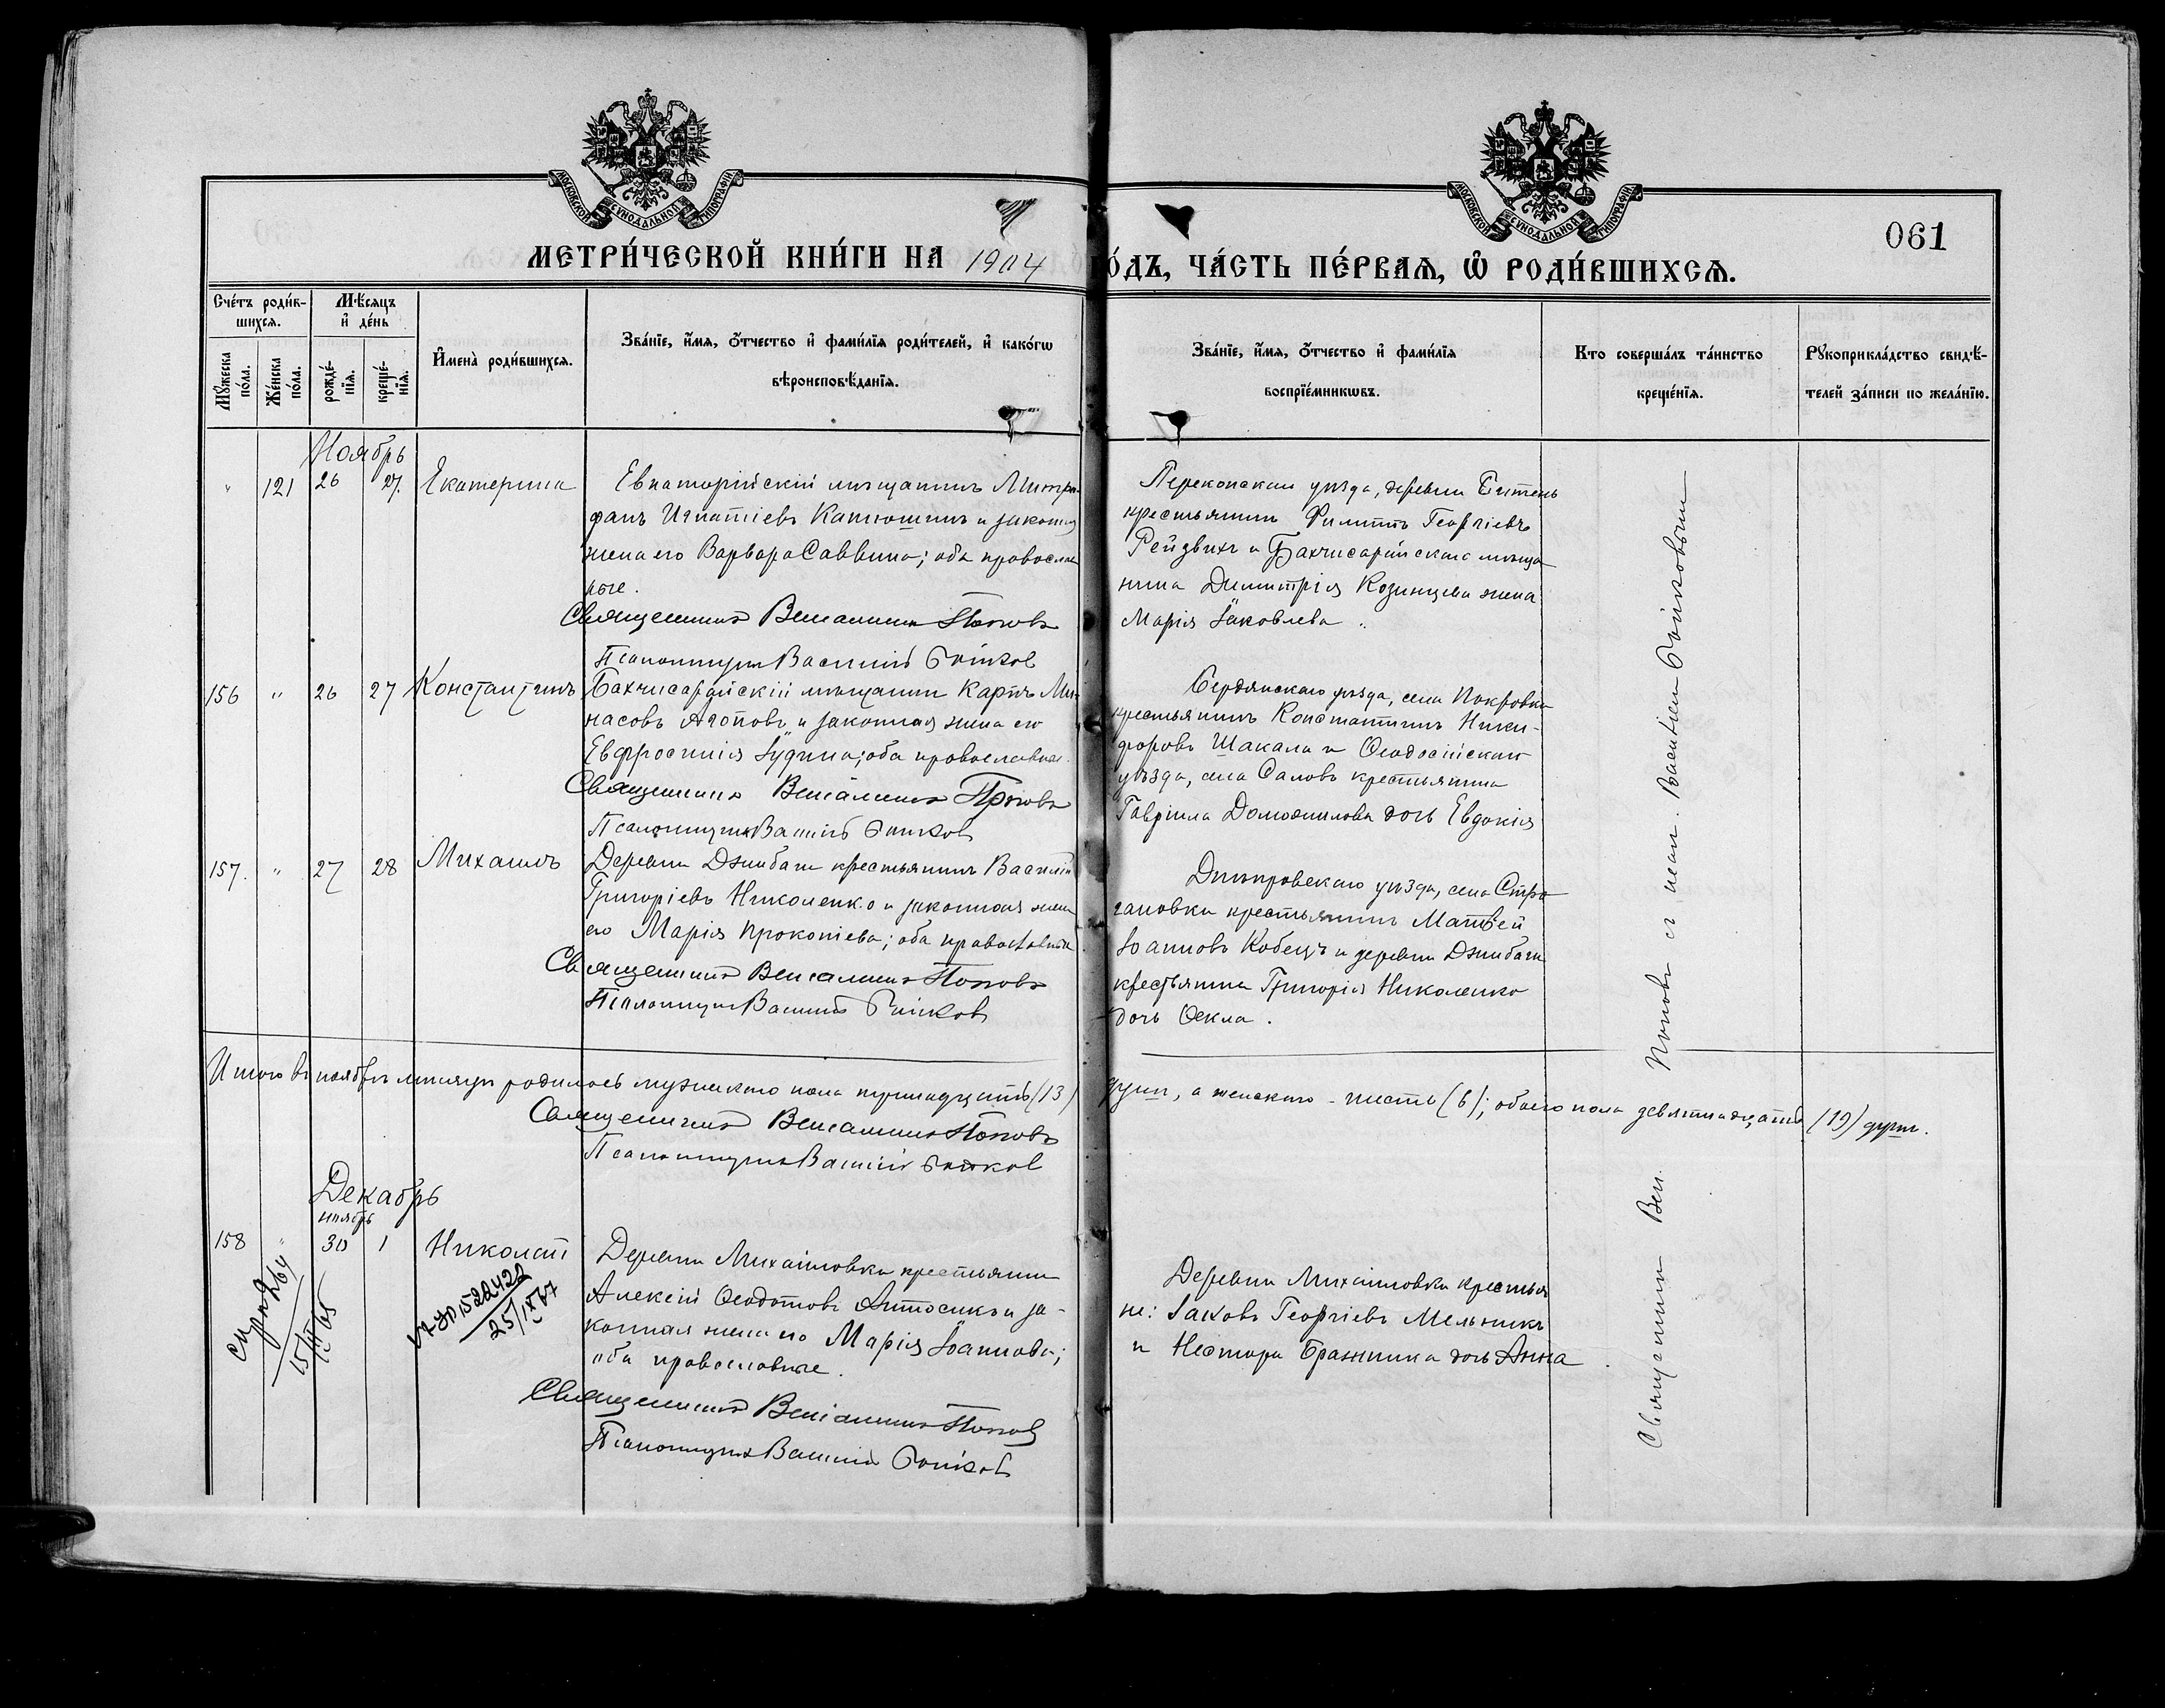 МОСКОВСКОЙ СѴНОДАЛЬНОЙ ТИПОГРАФІИ
МОСКОВСКОЙ СѴНОДАЛЬНОЙ ТИПОГРАФІИ
061
МЕТРИ́ЧЕСКОЙ КНИ́ГИ НА 1904
О́ДЪ, ЧА́СТЬ ПЕ́РВАѦ, Ѽ РОДИ́ВШИХСѦ.
Сче́тъ роди́в-
шихсѧ.
Мꙋ́жеска по́ла.
Же́нска по́ла.
Мѣ́сѧцъ
и҆ де́нь
рожде́-
нїѧ.
креще́-
нїѧ.
И҆мена̀ роди́вшихсѧ.
Зва́нїе, и҆́мѧ, ѻ҆́тчество и҆ фами́лїѧ роди́телей, и҆ како́гѡ
вѣроисповѣ́данїѧ.
Зва́нїе, и҆́мѧ, ѻ҆́тчество и҆ фами́лїѧ
воспрїе́мникѡвъ.
Кто соверша́лъ та́инство
креще́нїѧ.
Рꙋкоприкла́дство свидѣ́-
телей за́писи по жела́нїю.
Ноябрь
" 121 26 27. Екатерина
Евпаторійскій мѣщанинъ Митро-
фанъ Игнатіевъ Катюшинъ и законная
жена его Варвара Саввина; оба православ
ные.
Священникъ Веніаминъ Поповъ
Псаломщикъ Василій Бойков
Перекопскаго уѣзда, деревни Битень
крестьянинъ Филиппъ Георгіевъ
Рейзвихъ и Бахчисарайскаго мѣща
нина Димитрія Козинцева жена
Марія Іаковлева.
156 " 26 27 Константинъ
Бахчисарайскій мѣщанин Карпъ Ми-
насовъ Агоповъ и законная жена его
Евфросинія Іудина; оба православные.
Священникъ Веніаминъ Поповъ
Псаломщикъ Василій Бойков
Бердянскаго уѣзда, села Покровки
крестьянинъ Константинъ Ники-
форовъ Шакала и Ѳеодосійскаго
уѣзда, села крестьянина
Гавріила дочь Евдокія
157. " 27 28 Михаилъ
Деревни Джайбаги крестьянинъ Василій
Григоріевъ Николенко и законная жена
его Марія Прокопіева; оба православные.
Священникъ Веніаминъ Поповъ
Псаломщикъ Василій Бойков
Днѣпровскаго уѣзда, села Стро
гановки крестьянинъ Матвей
Іоанновъ Кобецъ и деревни Джайбаги
крестьянина Григорія Николенко
дочь Ѳекла.
Итого въ ноябрѣ мѣсяцѣ родилось мужескаго пола тринадцать (13)
душъ, а женскаго - шесть (6); обоего пола девятнадцать (19) душъ.
Священникъ Веніаминъ Поповъ
Псаломщикъ Василій Бойков
Декабрь
ноябрь
158 " 30 1 Николай
Деревни Михайловки крестьянин
Алексій Ѳеодотовъ Антосикъ и за-
конная жена его Марія Іоаннова;
оба православные.
Священникъ Веніаминъ Поповъ
Псаломщикъ Василій Бойков
Деревни Михайловки крестья
не: Іаковъ Георгіевъ Мельникъ
и Нестора Бражника дочь Анна.
264
25/IX 67
Священник Вен. Поповъ съ псал. Василіем Бойковым